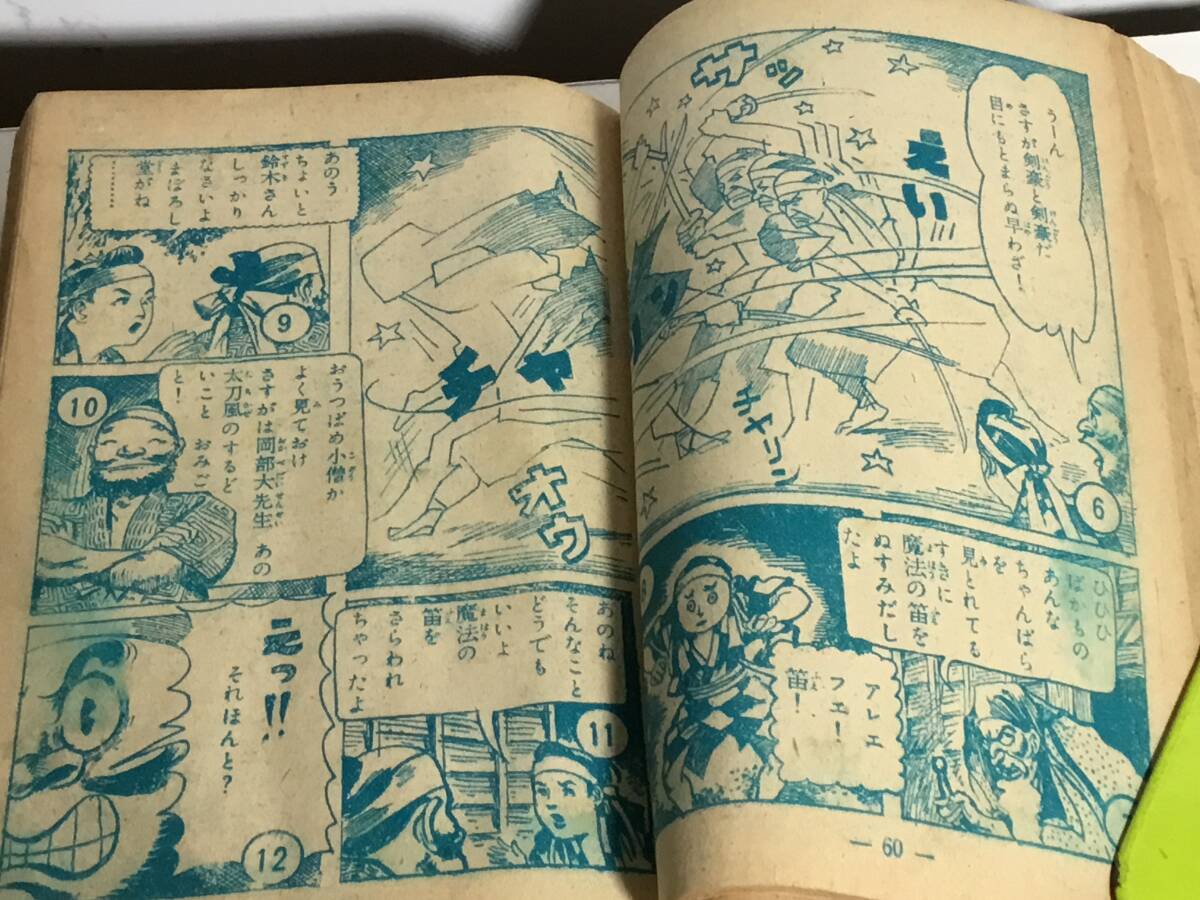 うーん
さすが剣豪と剣豪だ
目にもとまらぬ早わざ!
サッ
えい
チャリーン
6
ひひひ
ばかもの
あんな
ちゃんばら
を
見とれてる
すきに
魔法の笛を
ぬすみだし
たよ
アレェ
フエ!
笛!
— 60 —
チャ
オウ
あのう
ちょいと
鈴木さん
しっかり
なさいよ
まぼろし
堂がね
…………
9
おうつばめ小僧か
よく見ておけ
さすがは岡部大先生 あの
太刀風のするど
いこと おみご
と!
10
あのね
そんなこと
どうでも
いいよ
魔法の
笛を
さらわれ
ちゃったよ
11
えっ!!
それほんと?
12